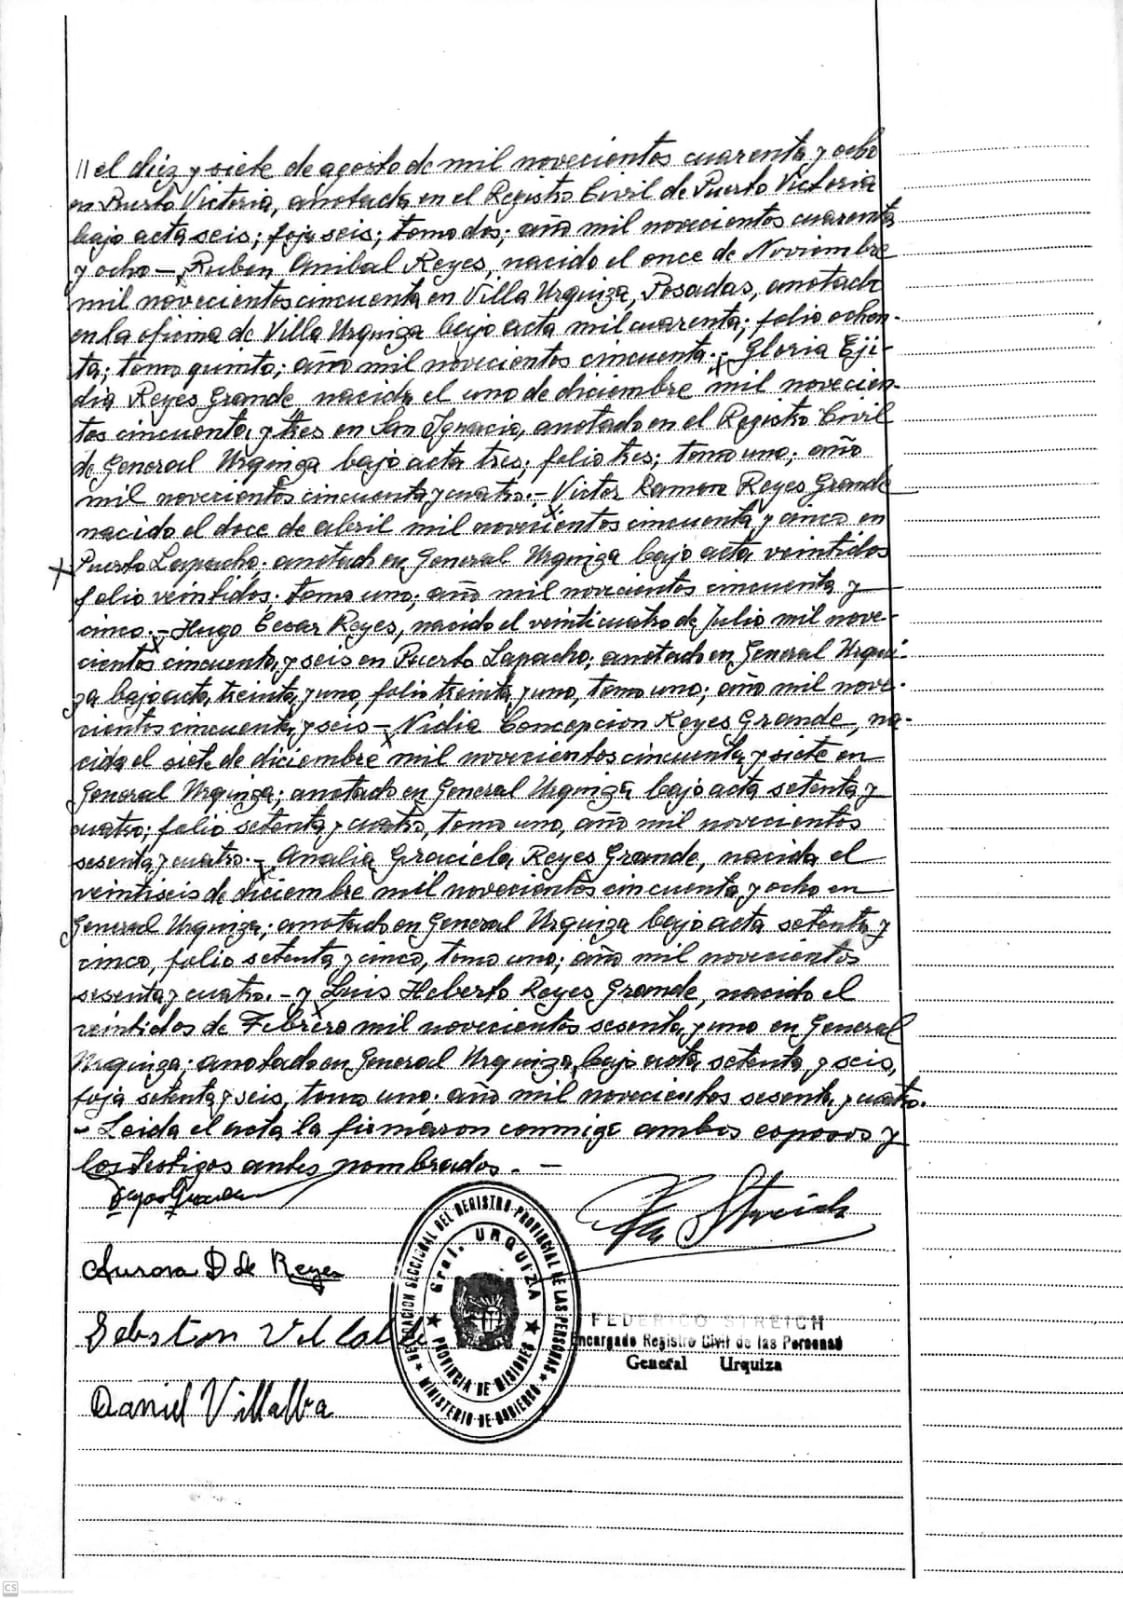 // el diez y siete de agosto de mil novecientos cuarenta y ocho
en Puerto Victoria, anotada en el Registro Civil de Puerto Victoria
bajo acta seis; foja seis; tomo dos; año mil novecientos cuarenta
y ocho - Ruben Anibal Reyes, nacido el once de Noviembre
mil novecientos cincuenta en Villa Urquiza, Posadas, anotado
en la oficina de Villa Urquiza bajo acta mil cuarenta; folio ochen-
ta; tomo quinto; año mil novecientos cincuenta.- Gloria Eji-
dia Reyes Grande nacida el uno de diciembre mil novecien-
tos cincuenta y tres en San Ignacio, anotado en el Registro Civil
de General Urquiza bajo acta tres; folio tres; tomo uno; año
mil novecientos cincuenta y cuatro.- Victor Ramon Reyes Grande
nacido el doce de abril mil novecientos cincuenta y cinco en
Puerto Lapacho; anotado en General Urquiza bajo acta veintidos
folio veintidos; tomo uno; año mil novecientos cincuenta y
cinco.- Hugo Cesar Reyes, nacido el veinticuatro de Julio mil nove-
cientos cincuenta y seis en Puerto Lapacho; anotado en General Urqui-
za bajo acta treinta y uno, folio treinta y uno, tomo uno; año mil nove-
cientos cincuenta y seis - Nidia Concepcion Reyes Grande, na-
cida el siete de diciembre mil novecientos cincuenta y siete en
General Urquiza; anotado en General Urquiza bajo acta setenta y
cuatro; folio setenta y cuatro, tomo uno, año mil novecientos
sesenta y cuatro.- Analia Graciela Reyes Grande, nacida el
veintiseis de diciembre mil novecientos cincuenta y ocho en
General Urquiza; anotado en General Urquiza bajo acta setenta y
cinco, folio setenta y cinco, tomo uno; año mil novecientos
sesenta y cuatro. - y Luis Heberto Reyes Grande, nacido el
veintidos de Febrero mil novecientos sesenta y uno en General
Urquiza; anotado en General Urquiza bajo acta setenta y seis,
foja setenta y seis, tomo uno; año mil novecientos sesenta y cuatro.
- Leida el acta la firmaron conmigo ambos esposos y
los testigos antes nombrados. -
Streich
Aurora D de Reyes
Sebstian Villalba
Daniel Villalba
DELEGACION SECCIONAL DEL REGISTRO PROVINCIAL DE LAS PERSONAS
Gral. URQUIZA
PROVINCIA DE MISIONES
MINISTERIO DE GOBIERNO
FEDERICO STREICH
Encargado Registro Civil de las Personas
General Urquiza
CS